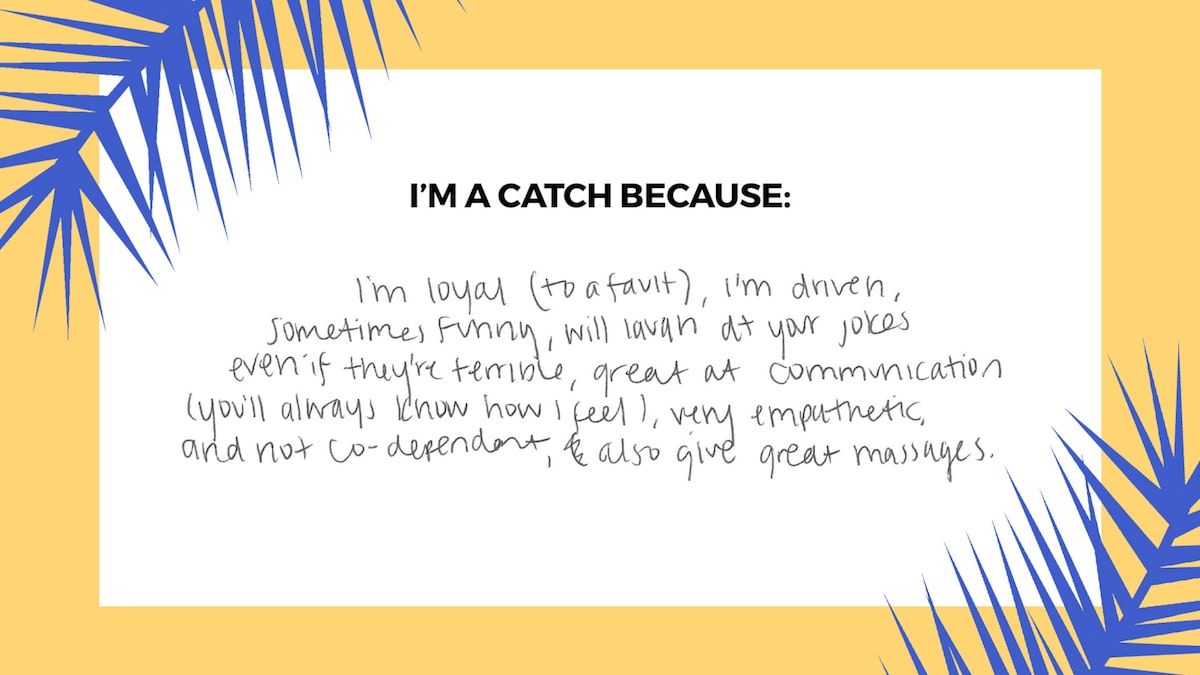 I'M A CATCH BECAUSE:
I'm loyal (to a fault), I'm driven,
sometimes funny, will laugh at your jokes
even if they're terrible, great at communication
(you'll always know how I feel), very empathetic,
and not co-dependent, & also give great massages.